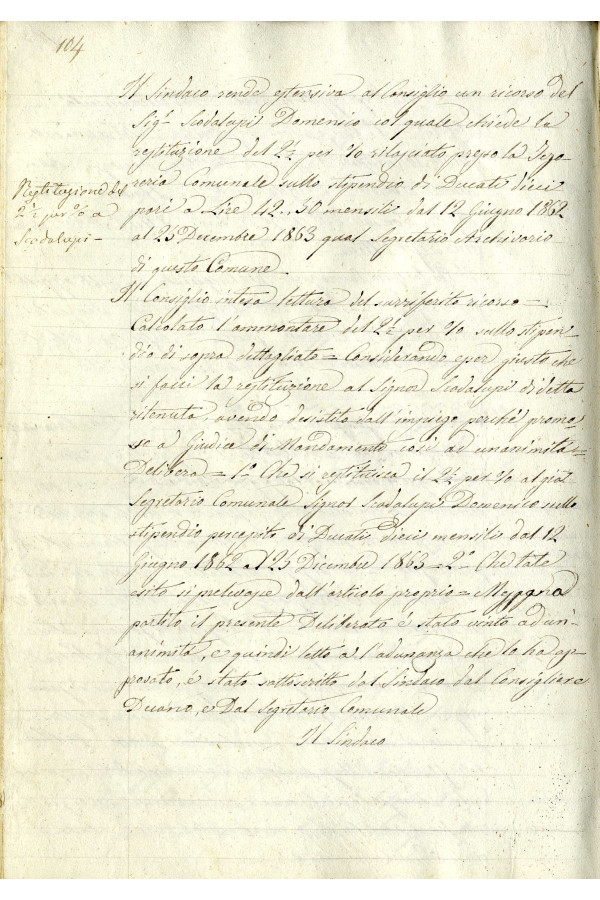 104
Il Sindaco rende estensiva al Consiglio un ricorso del
Sig.r Scodalupi Domenico col quale chiede la
restituzione del 2½ per % rilasciato presso la Teso-
reria Comunale sullo stipendio di Ducati dieci
pari a Lire 42..50 mensili dal 12 Giugno 1862
al 23 Decembre 1863 qual Segretario Archivario
di questo Comune.
Restituzione del
2½ per % a
Scodalupi-
Il Consiglio intesa lettura del surriferito ricorso=
Calcolato l'ammontare del 2½ per % sullo stipen-
dio di sopra dettagliato= Considerando esser giusto che
si facci la restituzione al Signor Scodalupi di detta
ritenuta, avendo desistito dall'impiego perchè promos-
so a Giudice di Mandamento, così ad unanimità=
Delibera= 1.o Che si restituisca il 2½ per % al già
Segretario Comunale Signor Scodalupi Domenico sullo
stipendio percepito di Ducati dieci mensili dal 12
Giugno 1862 al 23 Dicembre 1863= 2.o Che tale
esito si prelevasse dall'articolo proprio=
partito il presente Deliberato è stato vinto ad un-
animità, e quindi letto a l'adunanza che lo ha ap-
provato, è stato sottoscritto dal Sindaco dal Consigliere
Decano, e Dal Segretario Comunale
Il Sindaco